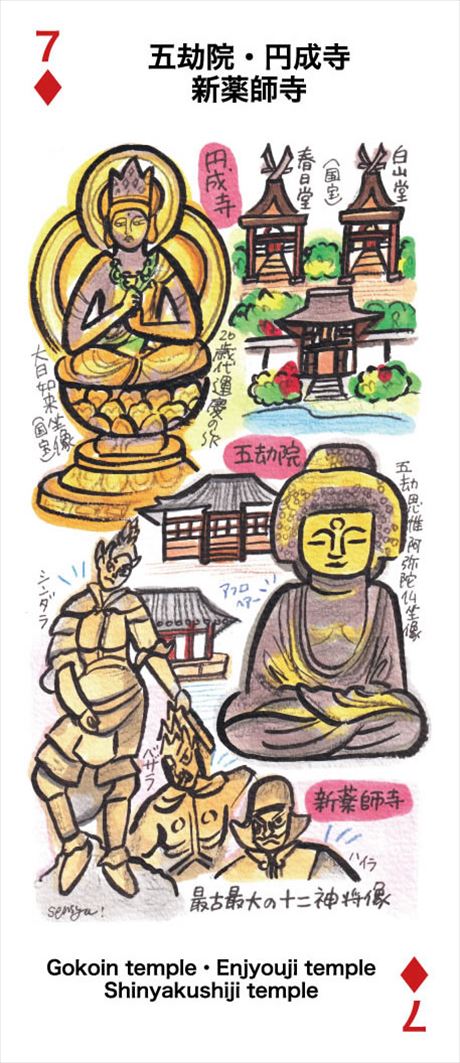 7
五劫院・円成寺
新薬師寺
円成寺
春日堂
(国宝)
白山堂
20歳代運慶の作
大日如来坐像
(国宝)
五劫院
五劫思惟阿弥陀仏坐像
アフロ
ヘアー
シンダラ
バザラ
新薬師寺
ハイラ
最古最大の十二神将像
sensyu!
Gokoin temple・Enjyouji temple
Shinyakushiji temple
7